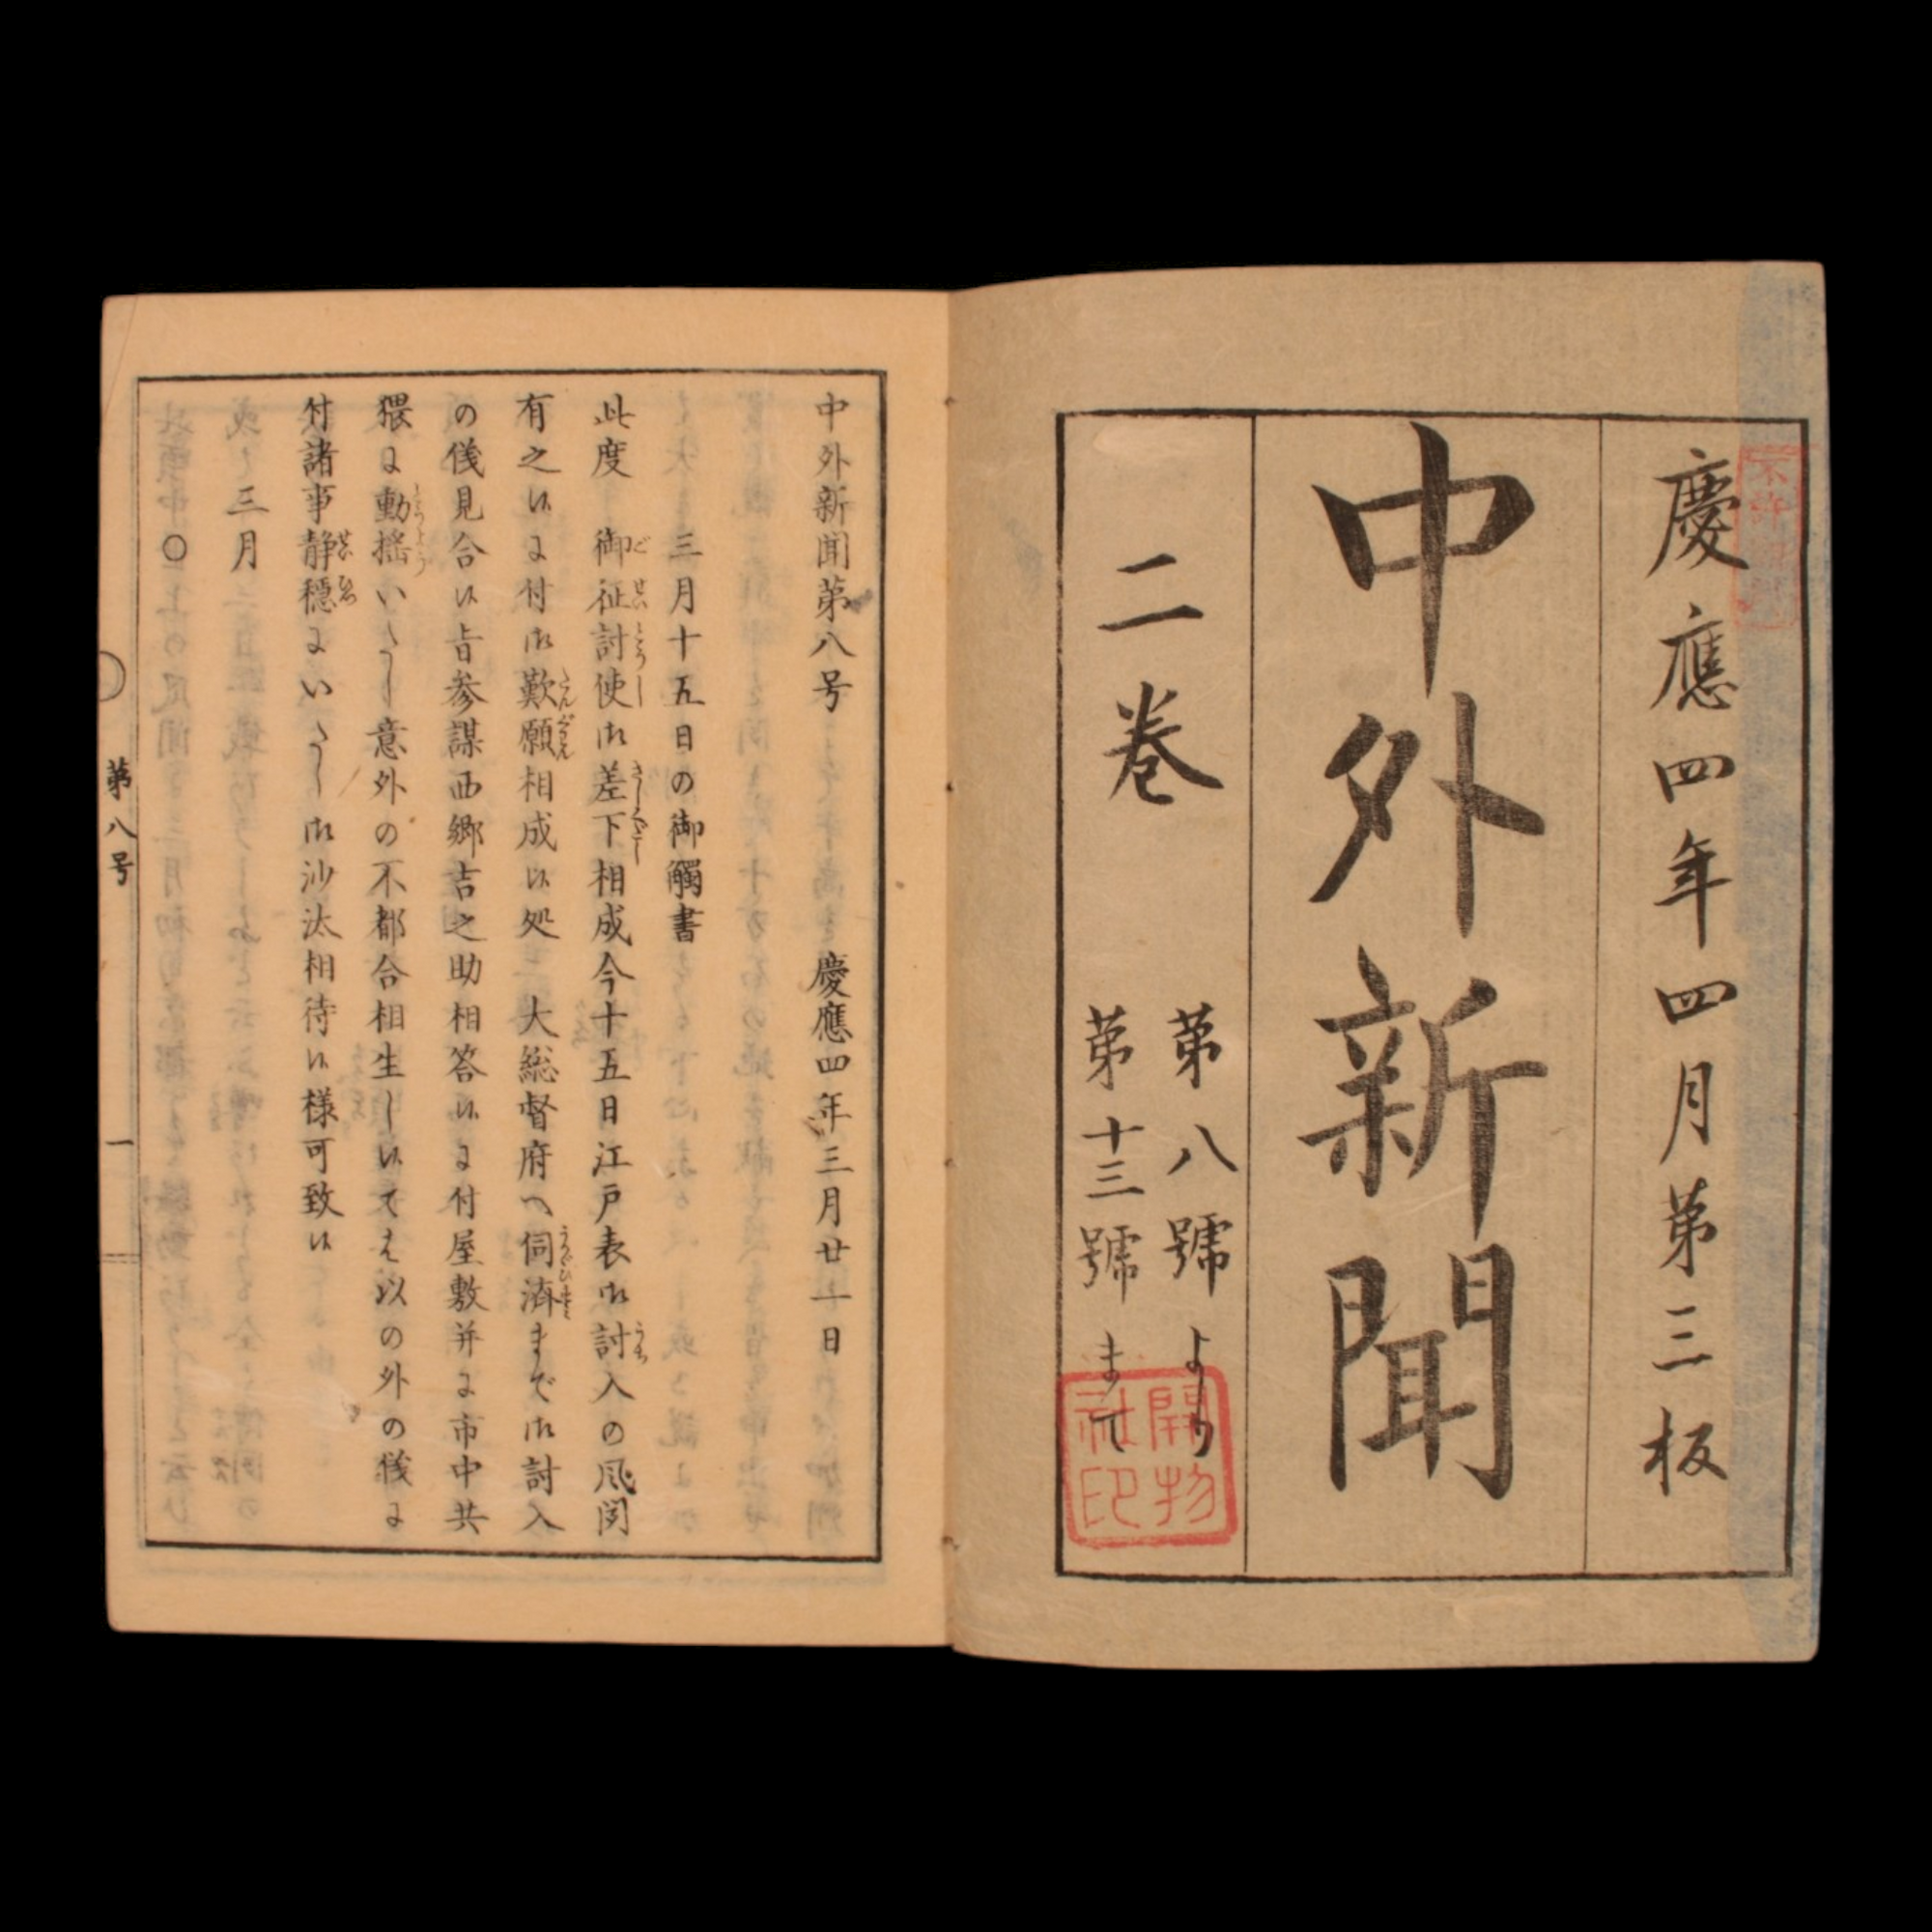 慶應四年四月第三板
中外新聞
二巻
第八號より
第十三號まで
開物社印
中外新聞第八号　慶應四年三月廿一日
三月十五日の御觸書
此度　御征討使御差下相成今十五日江戸表御討入の風聞
有之候に付御歎願相成候処　大総督府へ伺済まで御討入
の儀見合候旨参謀西郷吉之助相答候に付屋敷并に市中共
猥に動揺いたし意外の不都合相生し候ては以の外の儀に
付諸事静穏にいたし御沙汰相待候様可致候
三月
〇
第八号
一